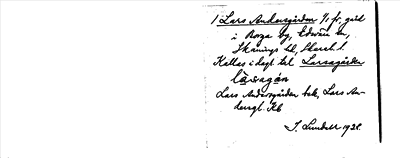 1 Lars Andersgården 1/1 fr. gård
i Borga by, Edsvära sn,
Skånings hd, Skarab. l.
Kallas i dagl. tal Larsagården
låsagán
Lars Andersgården bek, Lars An-
dersg. Kb
I. Lundahl 1928.